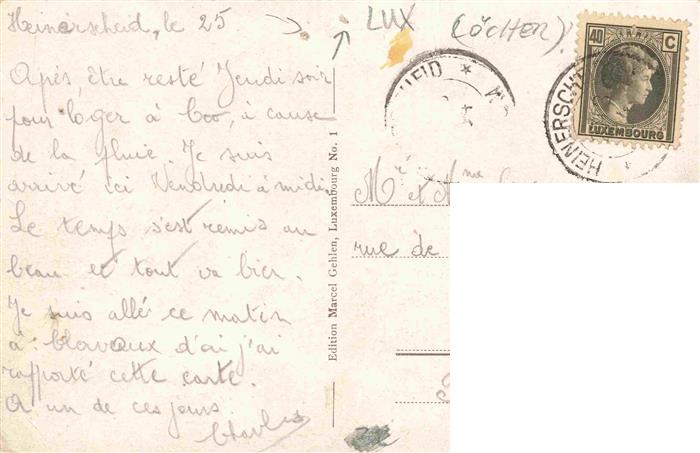 Heinerscheid, le 25
Après être resté Jeudi soir
pour loger à Coo, à cause
de la pluie Je suis
arrivé ici Vendredi à midi.
Le temps s'est remis au
beau et tout va bien.
Je suis allé ce matin
à Clervaux d'ai j'ai
rapporté cette carte.
A un de ces jours
Charles
Edition Marcel Gehlen, Luxembourg No. 1
LUX (LÖCHER)
HEID
40 C
LUXEMBOURG
HEINERSCH
Mr et Mme
rue de